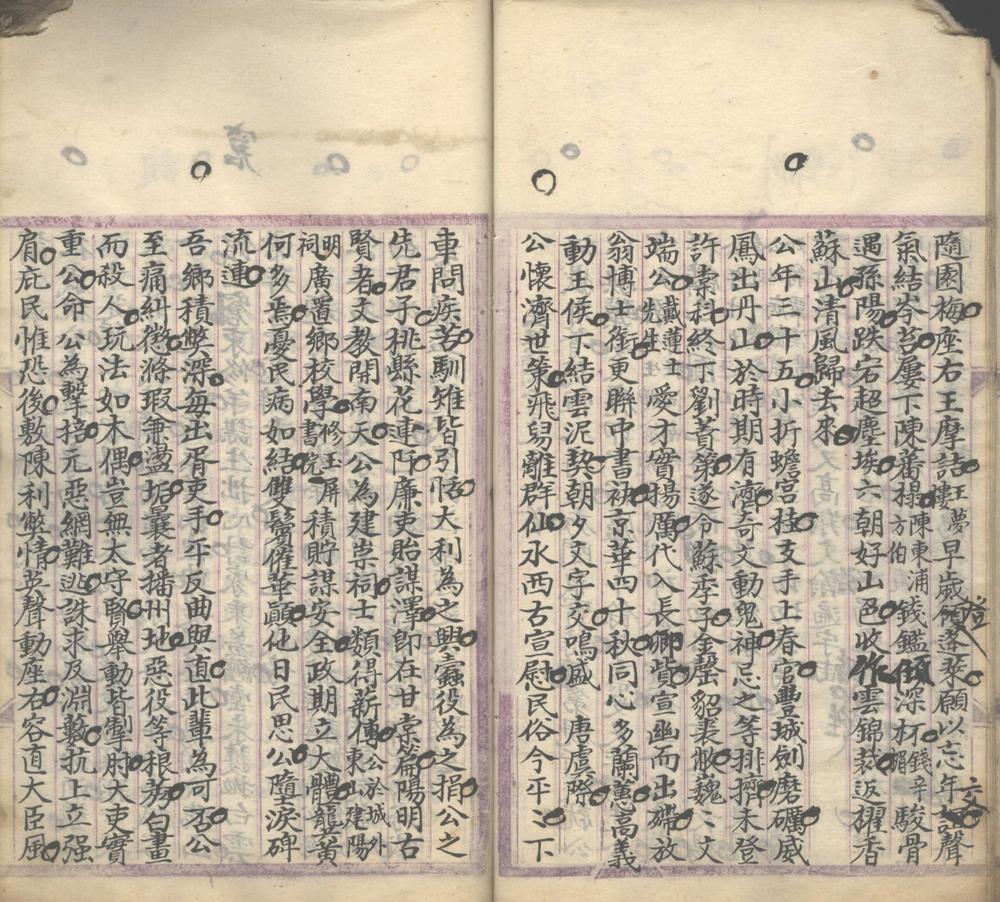 隨園梅座右王摩詰王夢樓早歲蓬萊願以忘年文聲
氣結岑苔屢下陳蕃榻陳東浦方伯錢鑑深杯錢辛楣駿骨
遇孫陽跌宕超塵埃六朝好山色收作雲錦裝返櫂香
蘇山清風歸去來
公年三十五小折蟾宮桂支手上春官豐城劍磨礪威
鳳出丹山於時期有濟奇文動鬼神忌之等排擠未登
許索科終下劉蕡第遂令蘇季子金罄貂裘敝巍〻文
端公戴蓮士先生愛才實揚厲代入長卿貲宣幽而出滯放
翁博士銜更聯中書袂京華四十秋同心多蘭蕙高義
動王侯下結雲泥契朝夕文字交鳴盛唐虞際
公懷濟世策飛舄離群仙水西古宣慰民俗今平〻下
車問疾苦馴雉皆引恬大利為之興蠹役為之捐公之
先君子桃縣花連阡廉吏貽謀澤即在甘棠篇陽明古
賢者文教開南天公為建崇祠士類得薪傳公於城外東山建陽
明祠廣置鄉校學修玉屏書院積貯謀安全政期立大體龔黃
何多焉憂民病如結雙鬢催華顛他日民思公墮淚碑
流連
吾鄉積弊深每出胥吏手平反曲與直此輩為可否公
至痛糾懲滌瑕兼盪垢曩者播州地惡役等稂莠白晝
而殺人玩法如木偶豈無太守賢舉動皆掣肘大吏實
重公命公為擊掊元惡網難逃誅求及淵藪抗上立強
肩庇民惟恐後敷陳利弊情英聲動座右容直大臣風